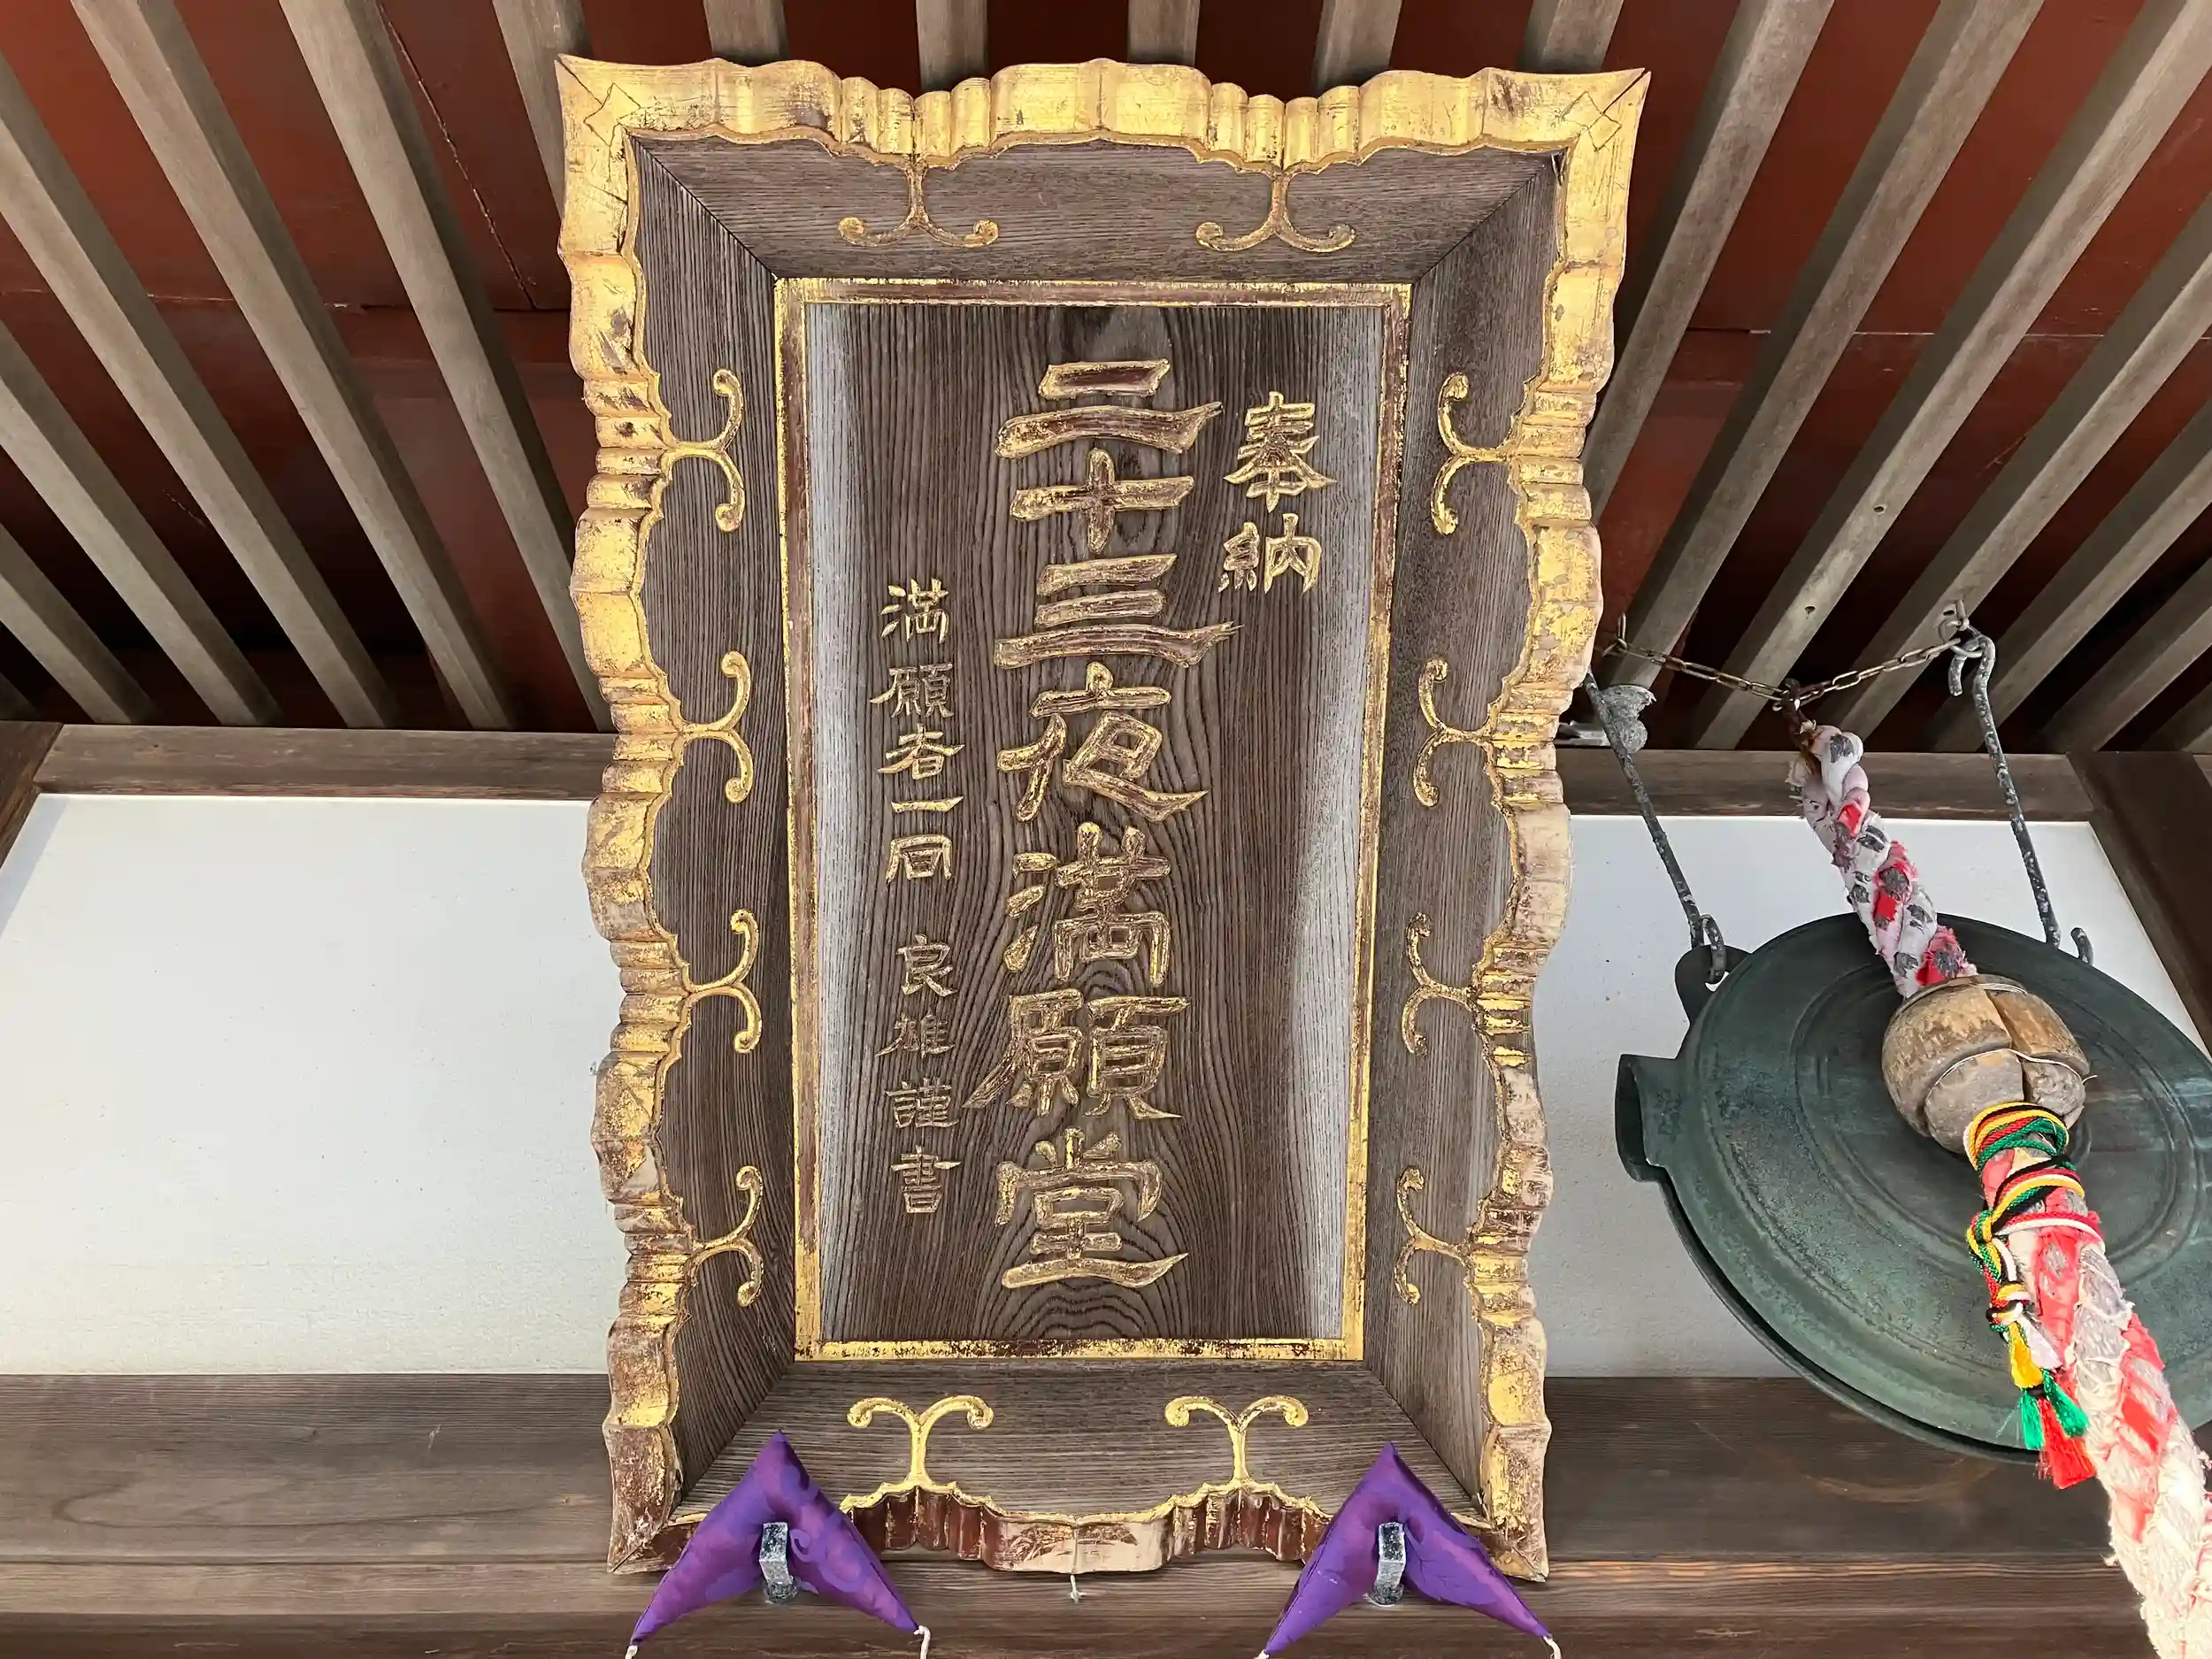 奉納
二十三夜満願堂
満願者一同 良雄謹書